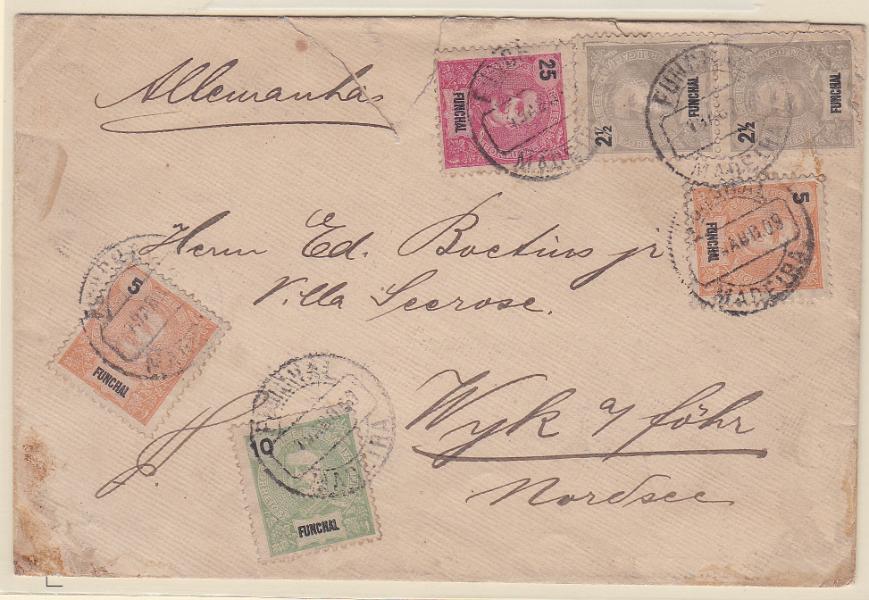 Allemanha
25
FUNCHAL
2½
FUNCHAL
2½
FUNCHAL
FUNCHAL
MADEIRA
5
FUNCHAL
MADEIRA
Herrn Ed. Boetius jr
Villa Seerose.
5
FUNCHAL
Wyk a/ föhr
Nordsee
FUNCHAL
MADEIRA
10
FUNCHAL